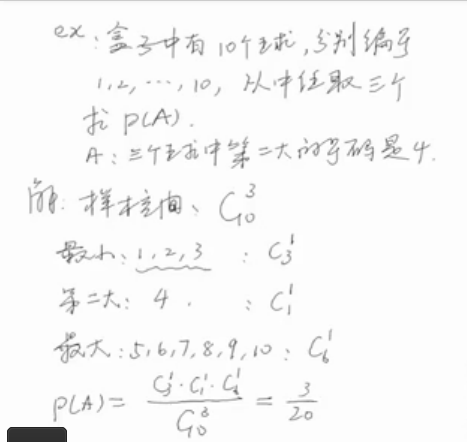 ex: 盒子中有10个球,分别编号
1,2,…,10, 从中任取三个
求 P(A).
A: 三个球中第二大的号码是4.
解: 样本空间: C₁₀³
最小: 1,2,3 : C₃¹
第二大: 4. : C₁¹
最大: 5,6,7,8,9,10: C₆¹
P(A) = (C₃¹·C₁¹·C₆¹)/C₁₀³ = 3/20